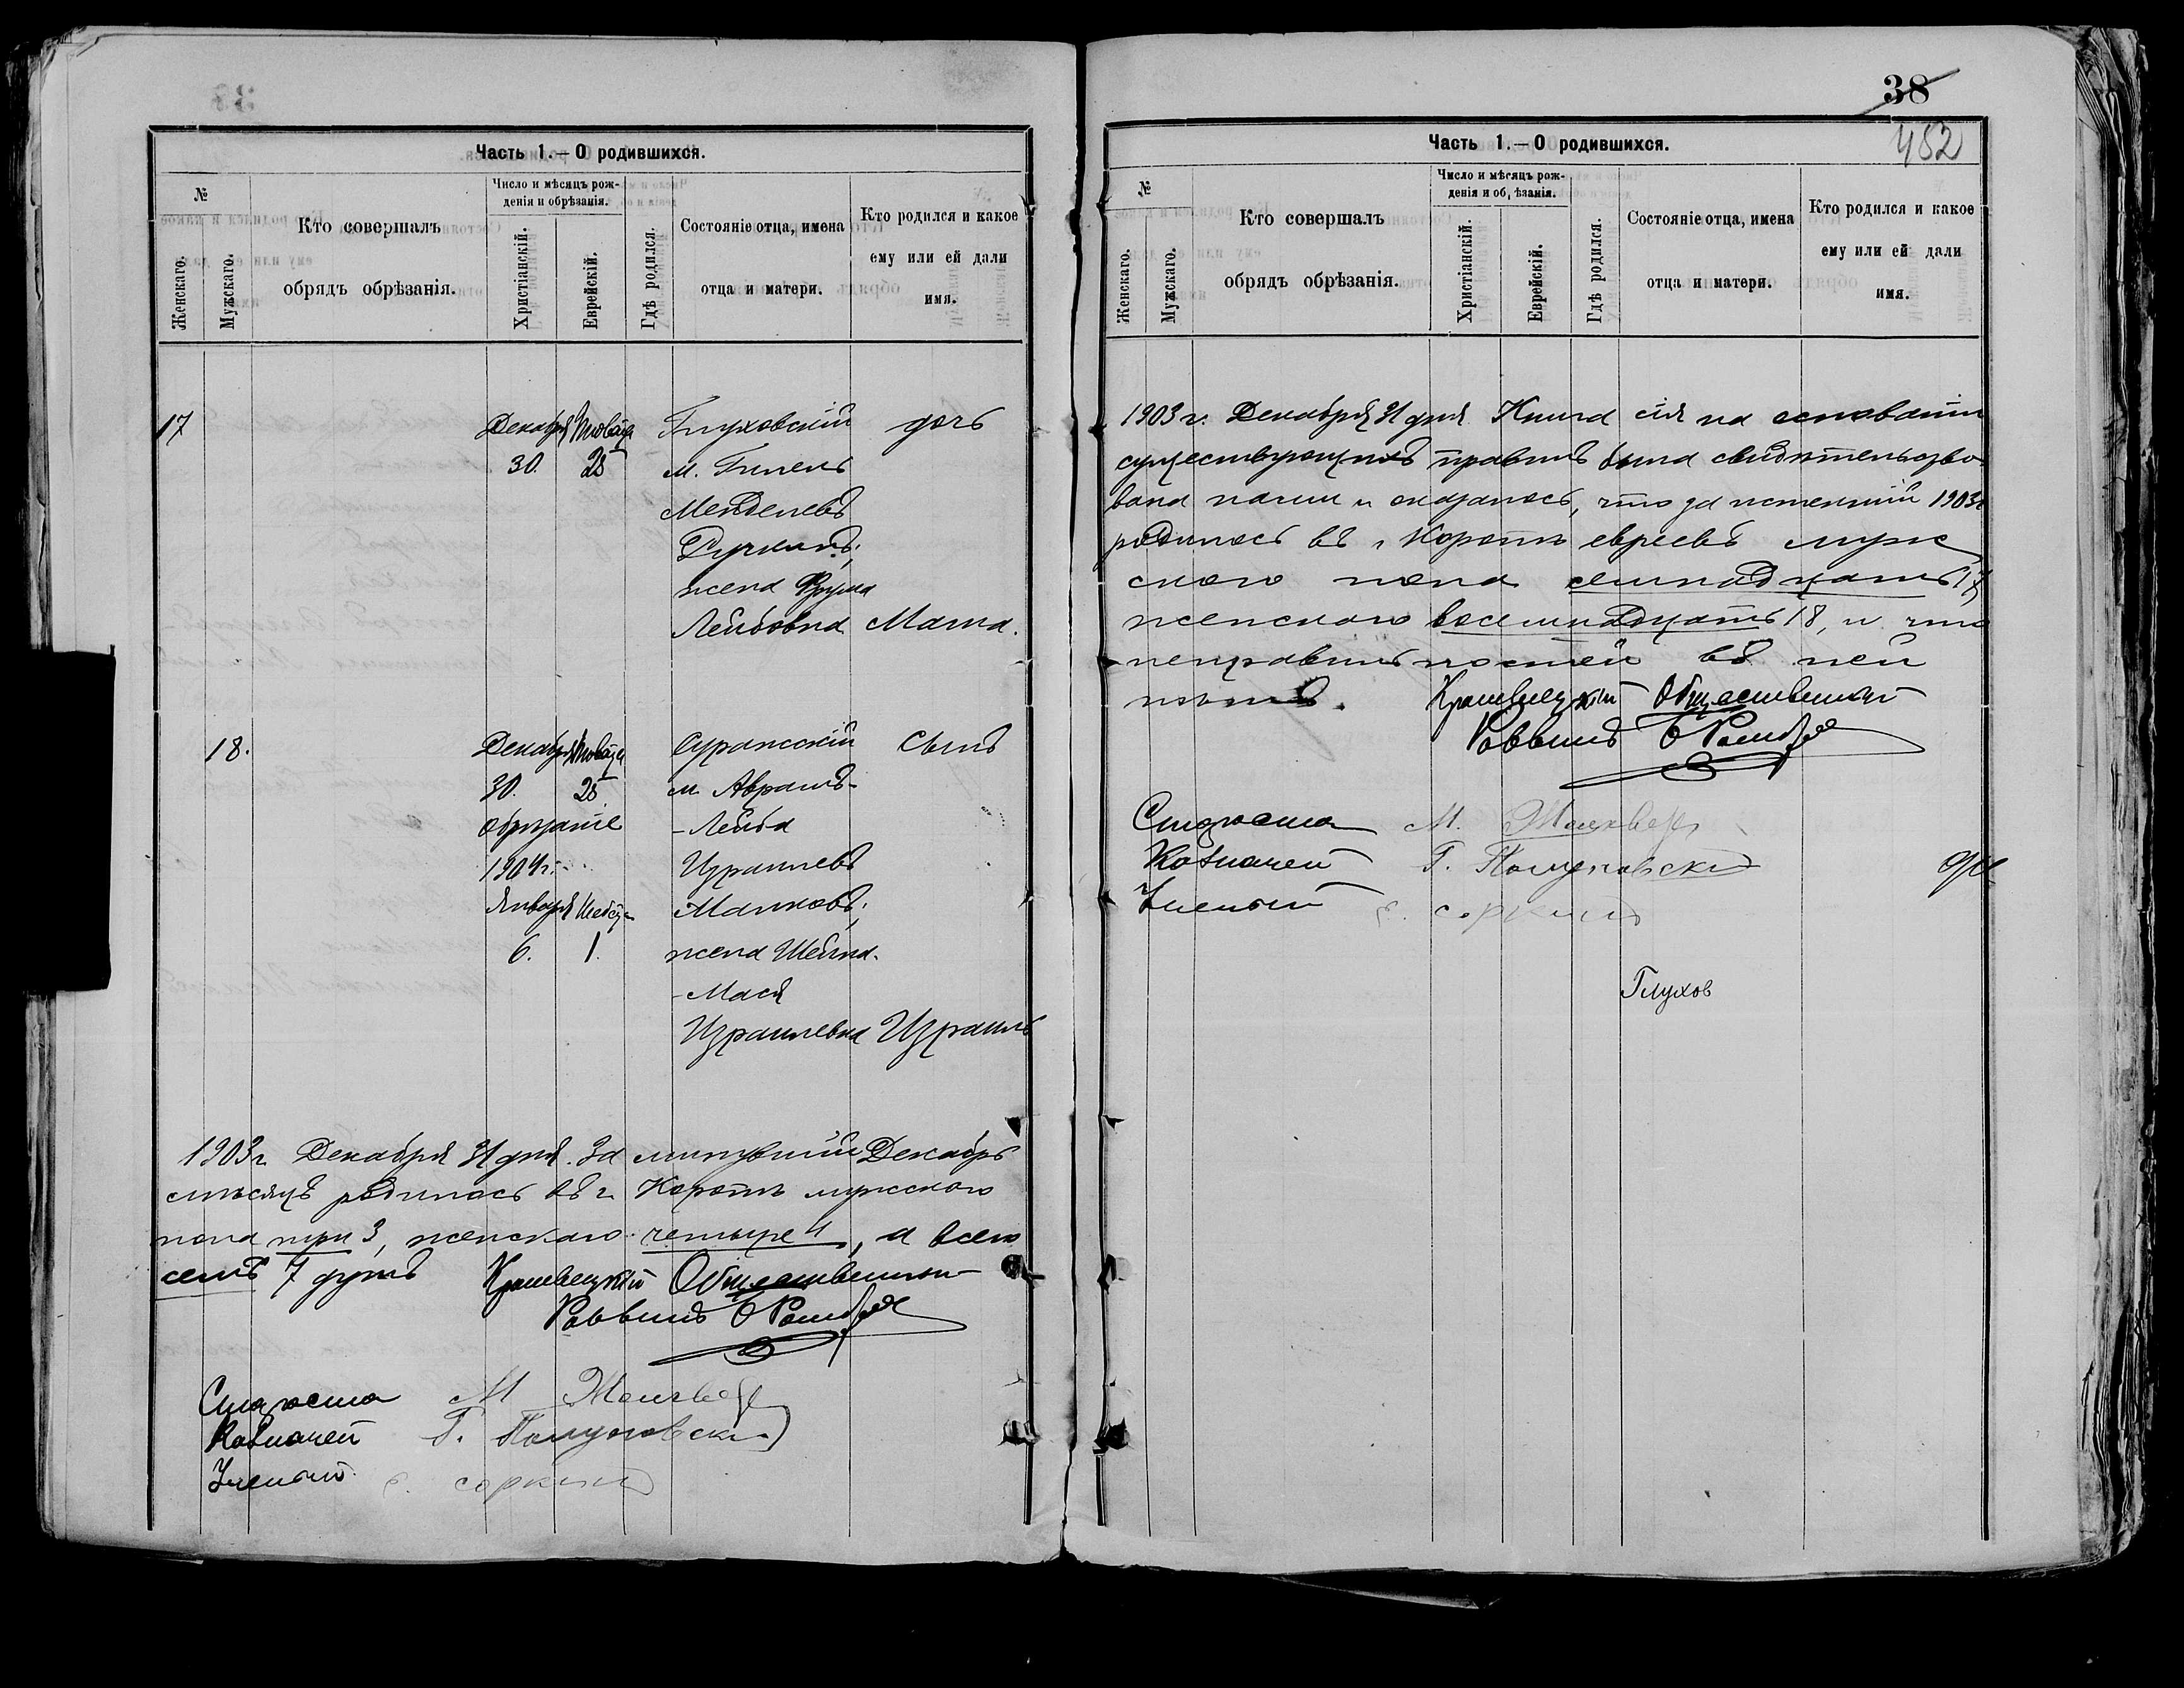 38
452
Часть 1.—О родившихся.
№
Женскаго.
Мужскаго.
Кто совершалъ
обрядъ обрѣзанія.
Число и мѣсяцъ рож-
денія и обрѣзанія.
Христіанскій.
Еврейскій.
Гдѣ родился.
Состояніе отца, имена
отца и матери.
Кто родился и какое
ему или ей дали
имя.
17
Декабря
30.
25
Глуховскій
м. Гилель
Менделевъ
жена Фрума
Лейбовна
дочь
Маша.
18.
Декабря
30.
25
Обрѣзаніе
1904 г.
Января
6.
1.
Суражскій
м. Абрамъ-
-Лейба
Израилевъ
Малковъ,
жена Шейна-
-Мася
Израилевна
Сынъ
Израиль
1903 г. Декабря 31 дня. За минувшій Декабрь
мѣсяцъ родилось въ г. Коропѣ мужскаго
пола три 3, женскаго четыре 4, а всего
семь 7 душъ
Кролевецкій Общественный
Раввинъ
Староста М
Казначей Г.
Ученый соркинъ
Часть 1.—О родившихся.
№
Женскаго.
Мужскаго.
Кто совершалъ
обрядъ обрѣзанія.
Число и мѣсяцъ рож-
денія и об, ѣзанія.
Христіанскій.
Еврейскій.
Гдѣ родился.
Состояніе отца, имена
отца и матери.
Кто родился и какое
ему или ей дали
имя.
1903 г. Декабря 31 дня. Книга сія на основаніи
существующихъ правилъ была свидѣтельство-
вана нами и оказалось, что за истекшій 1903 г
родилось въ г. Коропѣ евреевъ муж
скаго пола семнадцать 17,
женскаго восемнадцать 18, и что
неправильностей въ ней
нѣтъ.
Кролевецкій Общественный
Раввинъ
Староста М.
Казначей Г.
Ученый соркинъ
Глухов